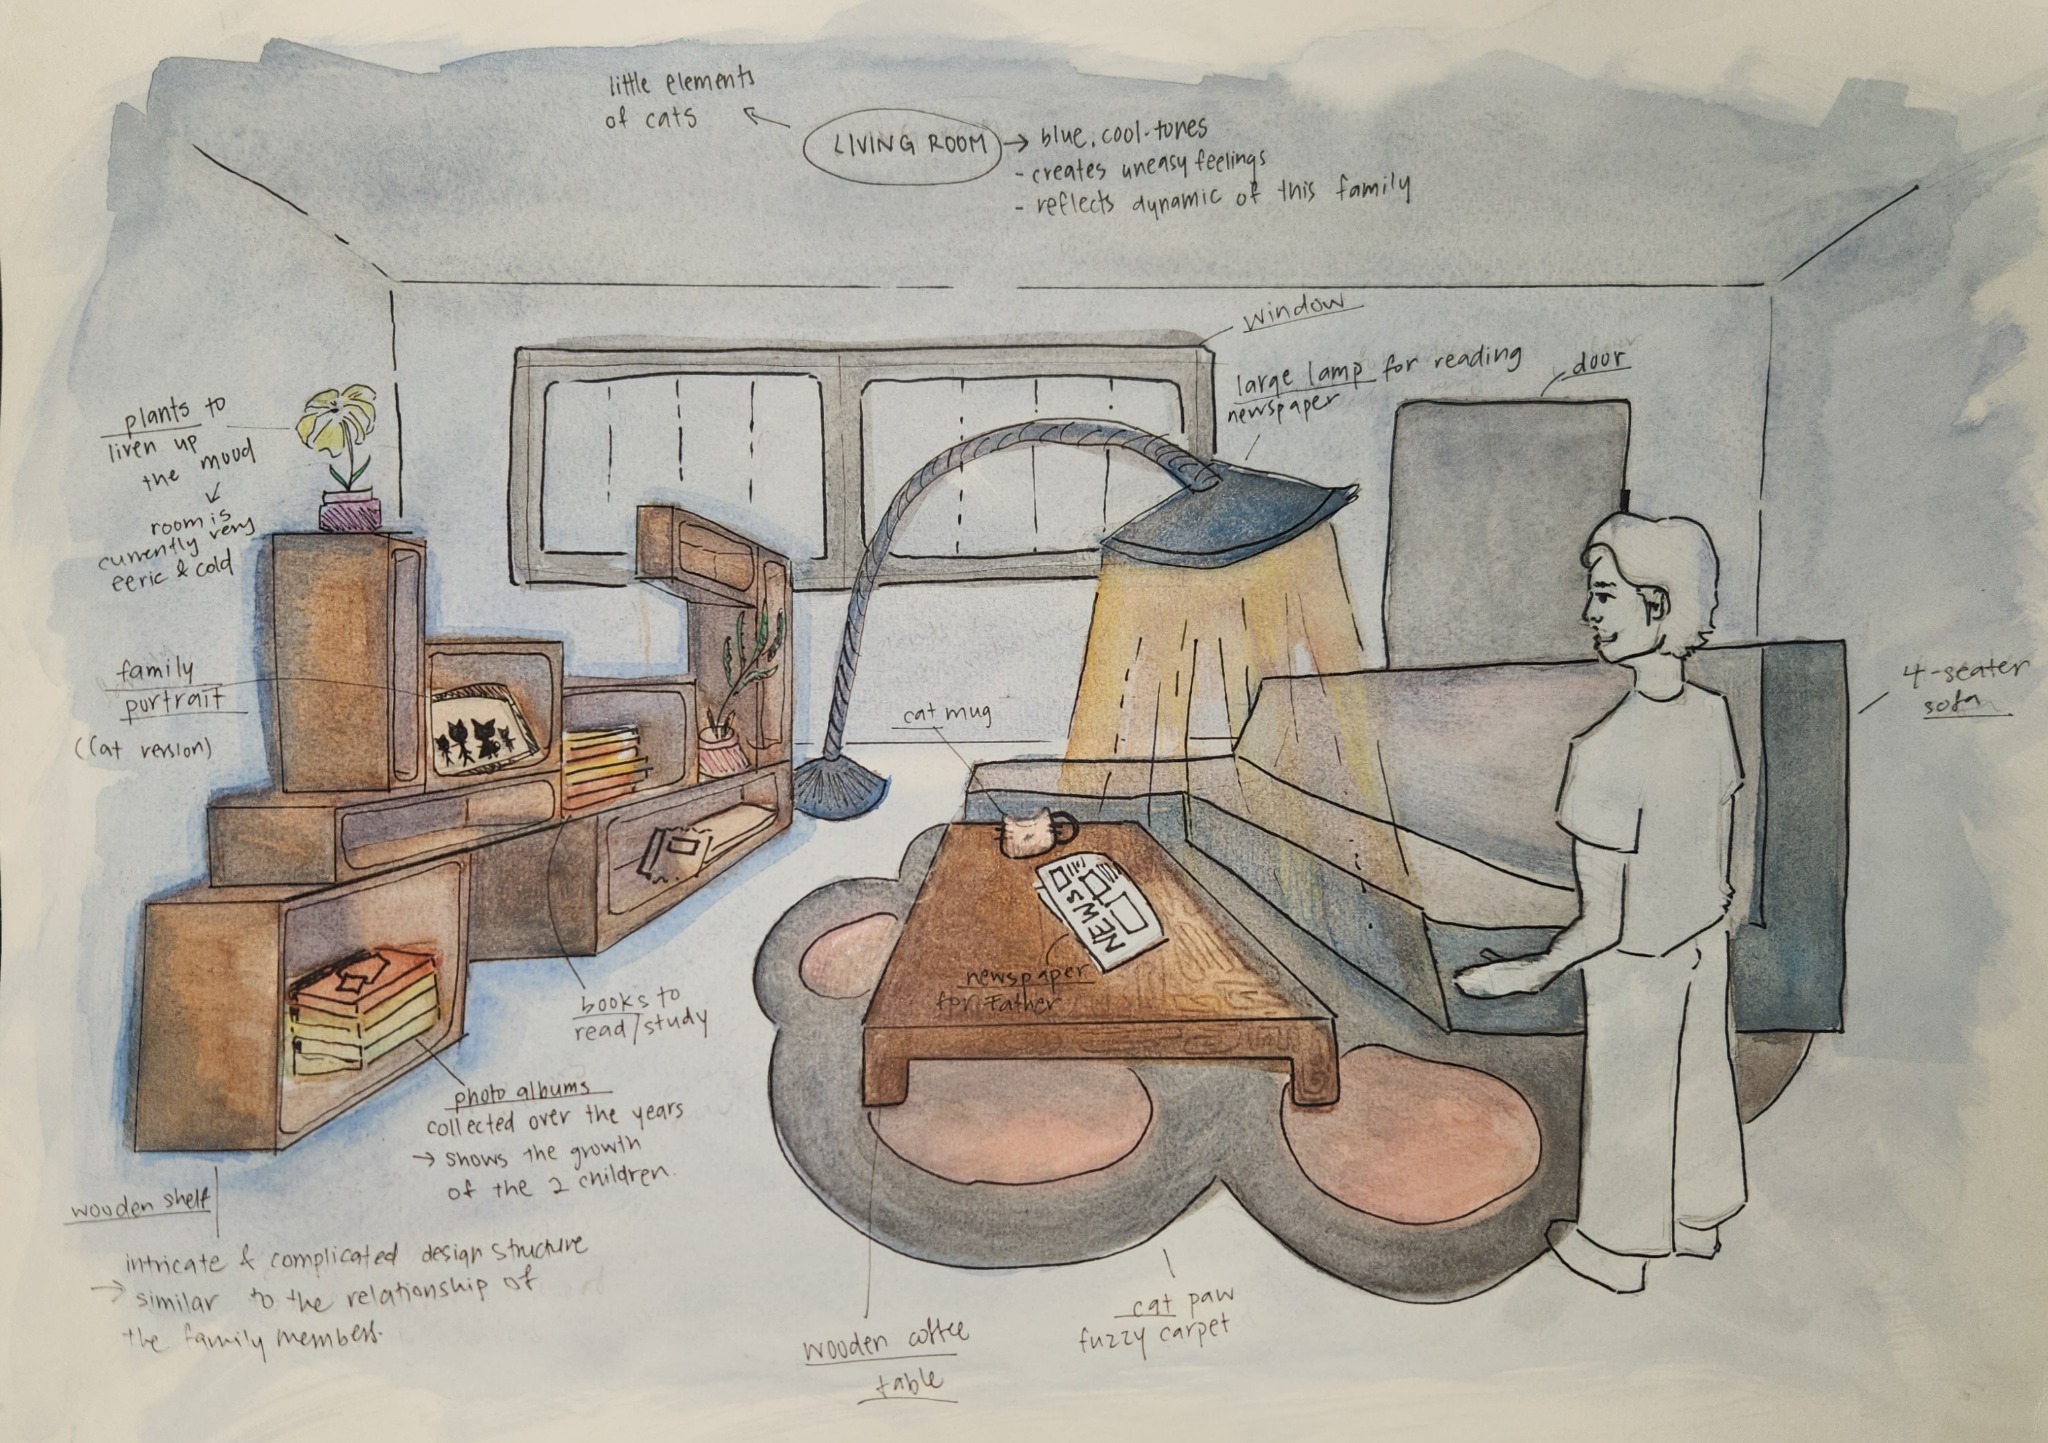 little elements
of cats
LIVING ROOM
→ blue, cool-tones
- creates uneasy feelings
- reflects dynamic of this family
window
large lamp for reading
newspaper
door
plants to
liven up
the mood
room is
currently very
eeric & cold
family
portrait
(Cat version)
cat mug
4-seater
sofa
NEWS
newspaper
for Father
books to
read/study
photo albums
collected over the years
→ shows the growth
of the 2 children.
wooden shelf
intricate & complicated design structure
→ similar to the relationship of
the family members.
cat paw
fuzzy carpet
wooden coffee
table